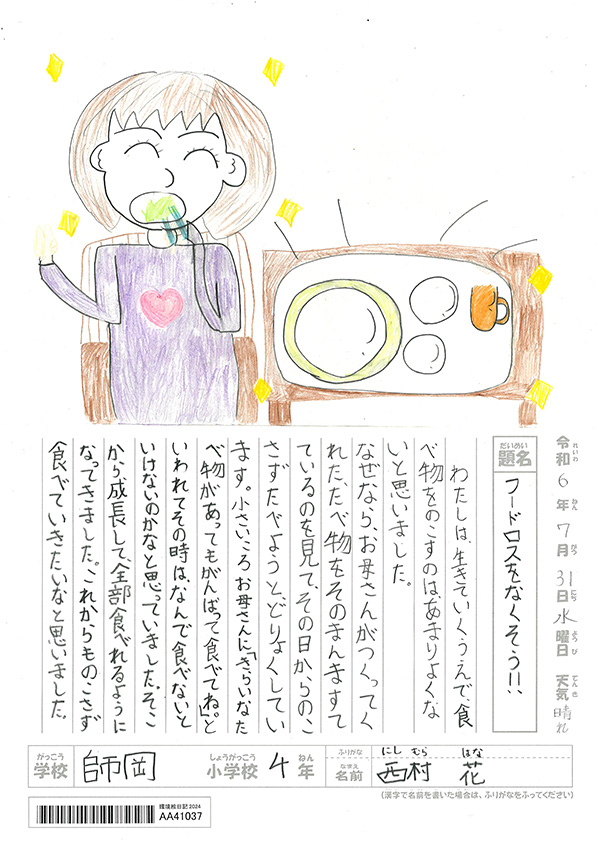 令和6年7月31日水曜日 天気晴れ
れいわ ねん がつ にち ようび てんき
だいめい
題名
フードロスをなくそう!!
わたしは、生きていくうえで、食
べ物をのこすのは、あまりよくな
いと思いました。
なぜなら、お母さんがつくってく
れた、たべ物をそのまんますて
ているのを見て、その日からのこ
さずたべようと、どりょくしてい
ます。小さいころ お母さんに「きらいなた
べ物があってもがんばって食べてね。」と
いわれてその時は、なんで食べないと
いけないのかなと思っていました。そこ
から、成長して、全部食べれるように
なってきました。これからものこさず
食べていきたいなと思いました。
がっこう
学校
師岡
しょうがっこう
小学校
4
ねん
年
ふりがな
にし むら はな
なまえ
名前
西村 花
(漢字で名前を書いた場合は、ふりがなをふってください)
環境絵日記2024
AA41037